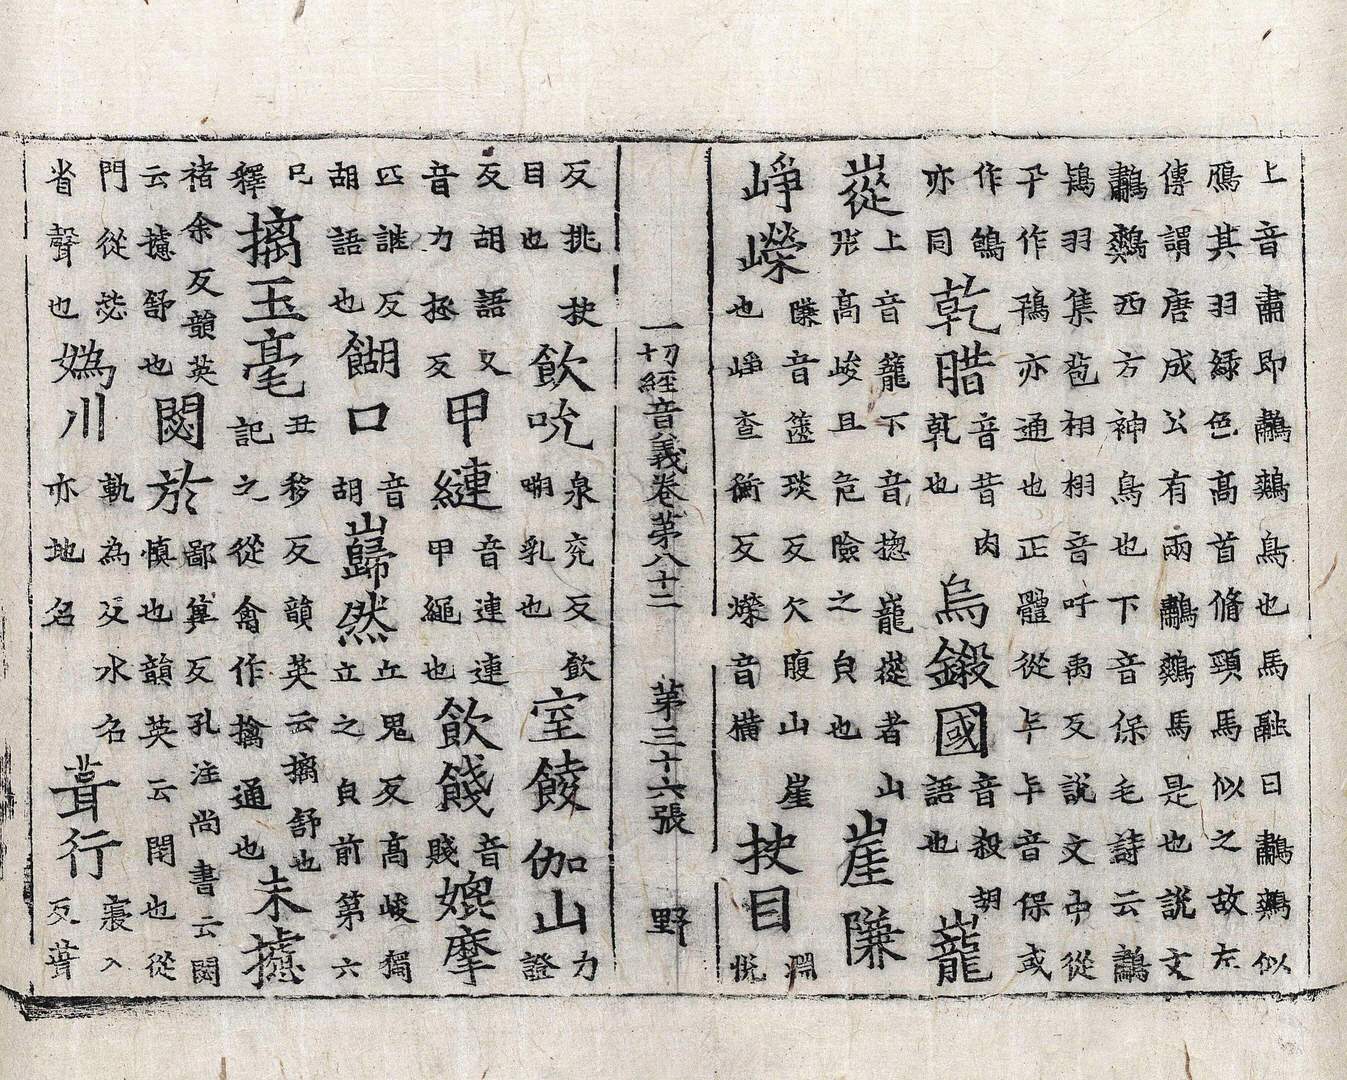 上音肅即鷫鷞鳥也馬融曰鷫鷞似
鴈其羽綠色高首脩頸馬似之故左
傳謂唐成公有兩鷫鷞馬是也說文
鷫鷞西方神鳥也下音保毛詩云鷫
鴇羽集苞栩栩音吁禹反說文中從
㐄作鴇亦通也正體從𠦒𠦒音保或
作鴇
亦同
乾腊
音昔肉
乾也
烏鍛國
音殺胡
語也
巃
嵸
上音籠下音揔巃嵸者山
形高峻且危險之皃也
崖㟻
崢嶸
㟻音簽琰反欠腹山崖
也崢查衡反嶸音橫
抉目
淵
悅
一切經音義卷第八十二 第三十六張 野
反挑抉
目也
飲吮
泉兖反飲
嗍乳也
室餕伽山
力
證
反胡語又
音力拯反
甲縺
音連連
甲繩也
飲餞
音
賤
媲摩
匹誰反
胡語也
餬口
音
胡
巋然
丘鬼反高峻獨
立之皃前第六
巳
釋
摛玉毫
丑移反韻英云摛舒也
記之從禽作擒通也
未攄
褚余反韻英
云攄舒也
閟於
鄙冀反孔注尚書云閟
慎也韻英云閇也從
門從毖
省聲也
媯川
軌為反水名
亦地名
葺行
寢入
反葺